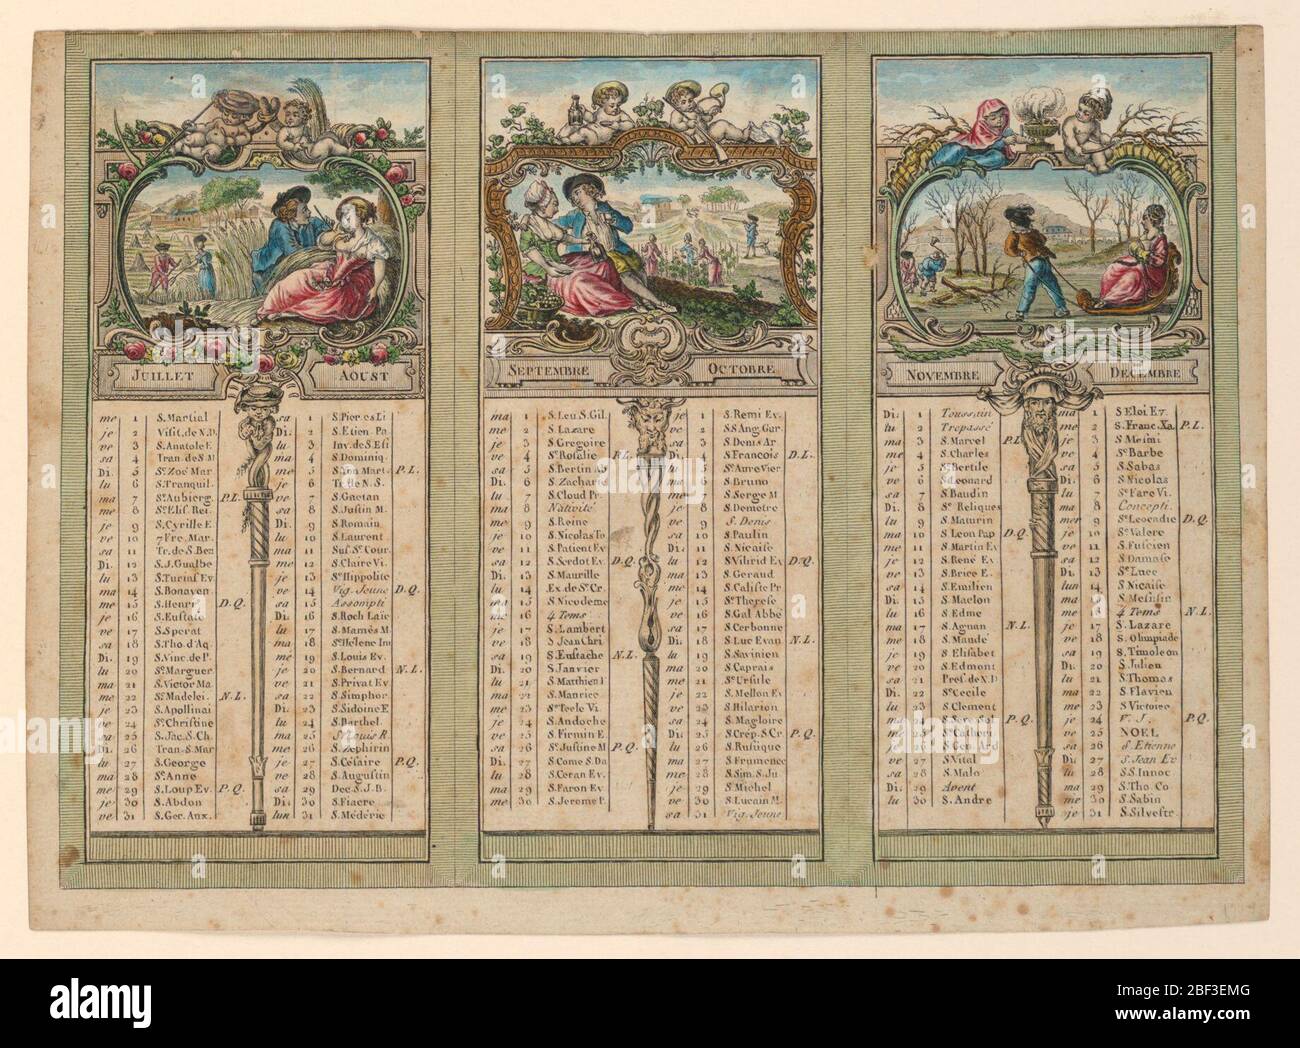 JUILLET
AOUST
me 1 S. Martial
je 2 Visit. de N.D.
ve 3 S. Anatole E
sa 4 Tran. de S. M
Di. 5 St. Zoé Mar
lu 6 S. Tranquil.
ma 7 St. Aubierg. P.L.
me 8 St. Elis. Rei.
je 9 S. Cyrille E.
ve 10 7 Fre. Mar.
sa 11 Tr. de S. Ben
Di. 12 S. J. Gualbe
lu 13 S. Turiaf Ev.
ma 14 S. Bonaven
me 15 S. Henri D.Q.
je 16 S. Eustate
ve 17 S. Sperat
sa 18 S. Tho. d'Aq.
Di. 19 S. Vinc. de P.
lu 20 St. Marguer
ma 21 S. Victor Ma.
me 22 St. Madelei. N.L.
je 23 S. Apollinai
ve 24 St. Christine
sa 25 S. Jac. S. Ch.
Di. 26 Tran. S. Mar
lu 27 S. George
ma 28 St. Anne
me 29 S. Loup Ev. P.Q.
je 30 S. Abdon
ve 31 S. Ger. Aux.
sa 1 S. Pier. es Li
Di. 2 S. Etien. Pa
lu 3 Inv. de S. Est
ma 4 S. Dominiq.
me 5 P.L.
je 6 Tr. de N. S.
ve 7 S. Gaetan
sa 8 S. Justin M.
Di. 9 S. Romain
lu 10 S. Laurent
ma 11 Sus. St. Cour.
me 12 S. Claire Vi.
je 13 St. Hippolite
ve 14 Vig. Jeune D.Q.
sa 15 Assompti
Di. 16 S. Roch Laïc
lu 17 S. Mamés M.
ma 18 St. Helene Im
me 19 S. Louis Ev.
je 20 S. Bernard N.L.
ve 21 S. Privat Ev.
sa 22 S. Simphor
Di. 23 S. Sidoine E
lu 24 S. Barthel.
ma 25 S. Louis R.
me 26 S. Zephirin
je 27 S. Césaire P.Q.
ve 28 S. Augustin
sa 29 Dec. S. J. B.
Di. 30 S. Fiacre
lun 31 S. Médéric
SEPTEMBRE
OCTOBRE
ma 1 S. Leu S. Gil.
me 2 S. Lazare
je 3 S. Gregoire
ve 4 St. Rosalie P.L.
sa 5 S. Bertin Ab
Di. 6 S. Zacharie
lu 7 S. Cloud Pr.
ma 8 Nativité
me 9 S. Reine
je 10 S. Nicolas To.
ve 11 S. Patient Ev
sa 12 S. Serdot Ev. D.Q.
Di. 13 S. Maurille
lu 14 Ex. de St. Cr.
ma 15 S. Nicodeme
me 16 4 Tems.
je 17 S. Lambert
ve 18 S. Jean Chri
sa 19 S. Eustache N.L.
Di. 20 S. Janvier
lu 21 S. Matthieu
ma 22 S. Maurice
me 23 St. Tecle Vi.
je 24 S. Andoche
ve 25 S. Firmin E.
sa 26 St. Justine M P.Q.
Di. 27 S. Come S. Da
lu 28 S. Ceran Ev.
ma 29 S. Faron Ev
me 30 S. Jerome P.
je 1 S. Remi Ev.
ve 2 SS. Ang. Gar.
sa 3 S. Denis Ar
Di. 4 S. Francois D.L.
lu 5 St. Aure Vier
ma 6 S. Bruno
me 7 S. Serge M
je 8 S. Demetre
ve 9 S. Denis
sa 10 S. Paulin
Di. 11 S. Nicaise
lu 12 S. Vilfrid Ev D.Q.
ma 13 S. Geraud
me 14 S. Caliste Pr.
je 15 St. Therese
ve 16 S. Gal Abbé
sa 17 S. Cerbonne
Di. 18 S. Luc Evan N.L.
lu 19 S. Savinien
ma 20 S. Caprais
me 21 St. Ursule
je 22 S. Mellon Ev
ve 23 S. Hilarion
sa 24 S. Magloire
Di. 25 S. Crep. S. Cr P.Q.
lu 26 S. Rustique
ma 27 S. Frumence
me 28 S. Sim. S. Ju
je 29 S. Michel
ve 30 S. Lucain M.
sa 31 Vig. Jeune
NOVEMBRE
DÉCEMBRE
Di. 1 Toussain
lu 2 Trepassé
ma 3 S. Marcel P.L
me 4 S. Charles
je 5 St. Bertile
ve 6 S. Leonard
sa 7 S. Baudin
Di. 8 St. Reliques
lu 9 S. Maturin
ma 10 S. Leon Pap D.Q.
me 11 S. Martin Ev
je 12 S. René Ev
ve 13 S. Brice E.
sa 14 S. Emilien
Di. 15 S. Maclon
lu 16 S. Edme
ma 17 S. Agnan N.L.
me 18 S. Maudé
je 19 S. Elisabet
ve 20 S. Edmont
sa 21 Pres. de N. D
Di. 22 St. Cecile
lu 23 S. Clement
ma 24 P.Q.
me 25 St. Catheri
je 26 S. Gen. Ard
ve 27 S. Vital
sa 28 S. Malo
Di. 29 Avent
lu 30 S. Andre
ma 1 S. Eloi Ev.
me 2 S. Franc. Xa. P.L.
je 3
ve 4 St. Barbe
sa 5 S. Sabas
Di. 6 S. Nicolas
lu 7 St. Fare Vi.
ma 8 Concepti.
mer 9 St. Leocadie D.Q.
je 10 St. Valere
ve 11 S. Fuscien
sa 12 S. Damase
Di. 13 St. Luce
lu 14 S. Nicaise
ma 15 S. Mesmin
me 16 4 Tems N.L.
je 17 S. Lazare
ve 18 S. Olimpiade
sa 19 S. Timoleon
Di. 20 S. Julien
lu 21 S. Thomas
ma 22 S. Flavien
me 23 S. Victoire
je 24 V. J. P.Q.
ve 25 NOEL
sa 26 S. Etienne
Di. 27 S. Jean Ev
lu 28 S.S. Innoc
ma 29 S. Tho. Co
me 30 S. Sabin
je 31 S. Silvestre
alamy
Image ID: 2BF3EMG
www.alamy.com